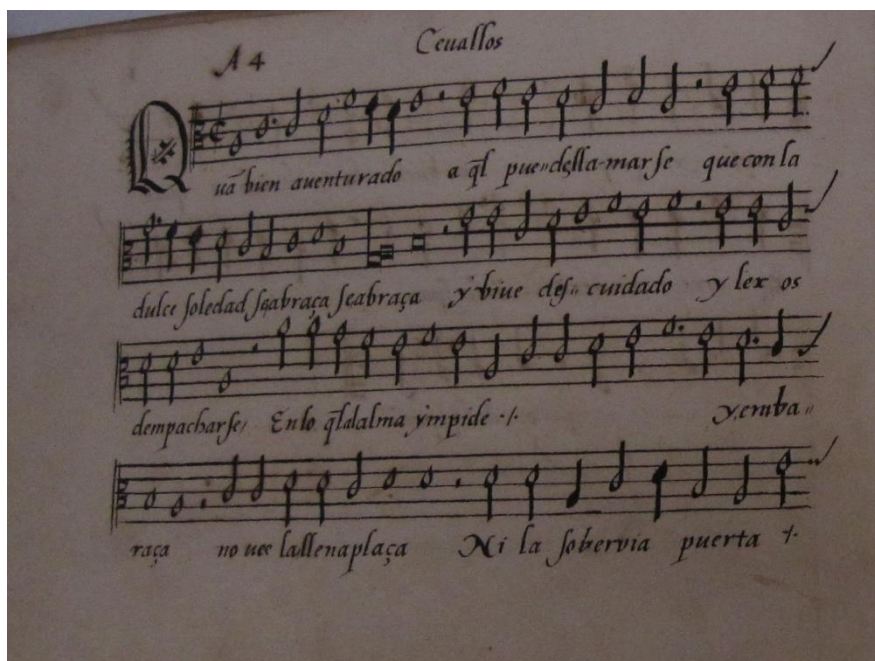 Ceuallos
A 4
Quā bien auenturado a q̄l pue della marse que con la
dulce soledad seabraça seabraça y biue des cuidado y lex os
dempacharse En lo q̄l dalma ympide ·/· y emba
raça no uee la llena plaça Ni la sobervia puerta ·/·